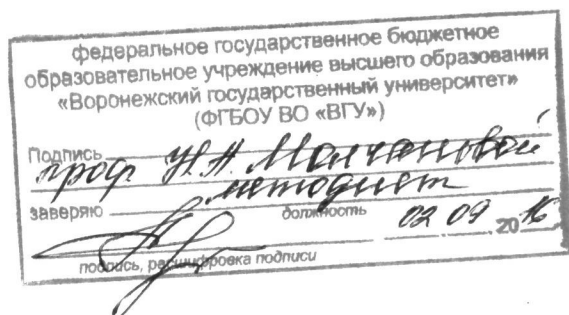 федеральное государственное бюджетное
образовательное учреждение высшего образования
«Воронежский государственный университет»
(ФГБОУ ВО «ВГУ»)
Подпись
проф Н.А. Молчановой
методист
заверяю должность 02 09 20 16
подпись, расшифровка подписи